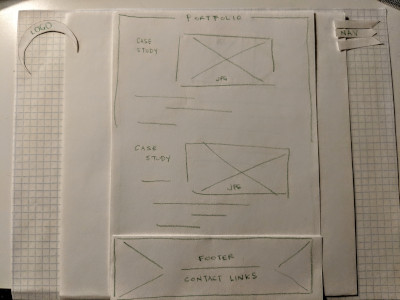 PORTFOLIO
LOGO
NAV
CASE
STUDY
JPG
CASE
STUDY
JPG
FOOTER
CONTACT LINKS